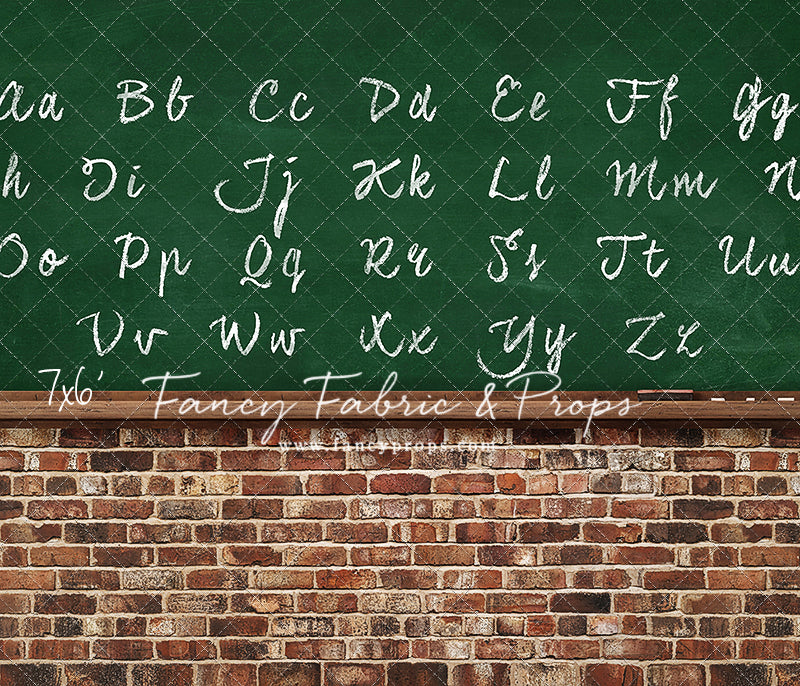 Aa Bb Cc Dd Ee Ff Gg
h Ii Jj Kk Ll Mm N
Oo Pp Qq Rr Ss Tt Uu
Vv Ww Xx Yy Zz
7x6' Fancy Fabric & Props
www.fancyprops.com